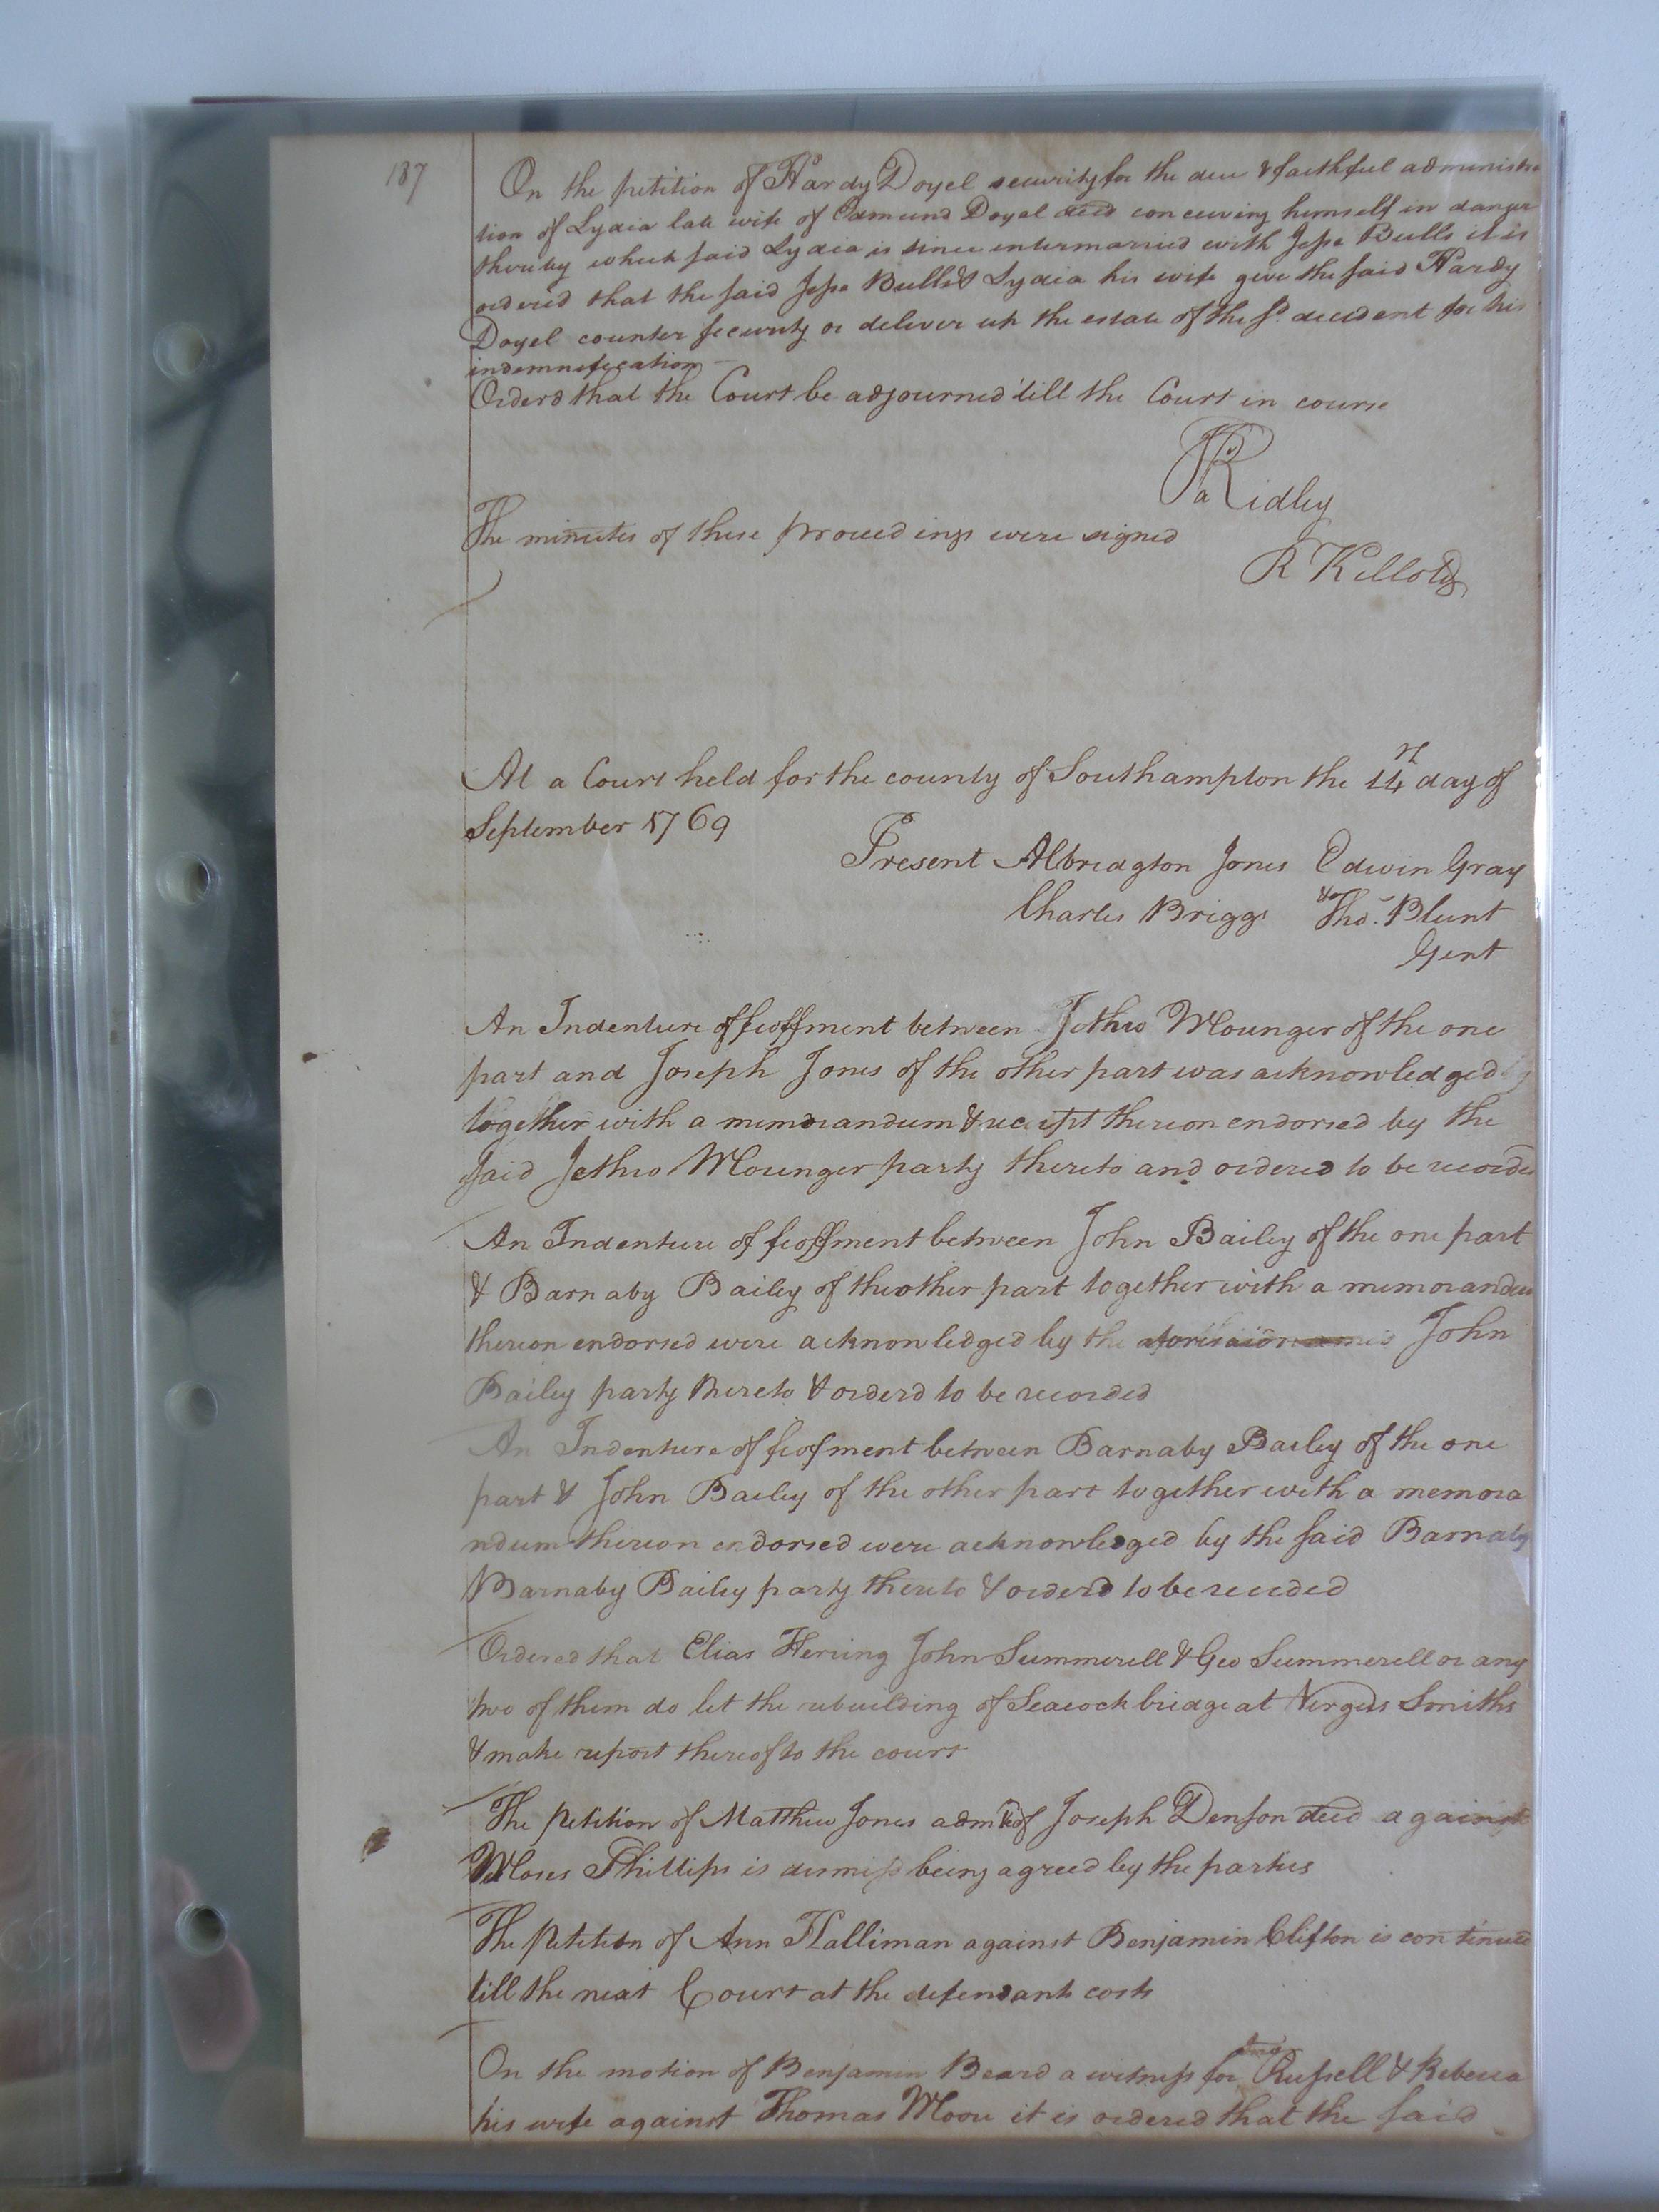 187
On the petition of Hardy Doyel security for the due & faithful administra
tion of Lydia late wife of Edmund Doyel decd conceiving himself in danger
thereby which said Lydia is since intermarried with Jesse Bulls it is
ordered that the said Jesse Bulls & Lydia his wife give the said Hardy
Doyel counter security or deliver up the estate of the sd. decedent for his
indemnification
Orderd that the Court be adjourned till the Court in course
The minutes of these proceedings were signed
Ridley
R Kello
At a Court held for the county of Southampton the 14 day of
September 1769
Present Albridgton Jones Edwin Gray
Charles Briggs & Tho. Blunt
Gent
An Indenture of feoffment between Jethro Mounger of the one
part and Joseph Jones of the other part was acknowledged
together with a memorandum & receipt thereon endorsed by the
said Jethro Mounger party thereto and ordered to be recorded
An Indenture of feoffment between John Bailey of the one part
& Barnaby Bailey of the other part together with a memorandu
thereon endorsed were acknowledged by the aforesaid John
Bailey party thereto & orderd to be recorded
An Indenture of feofment between Barnaby Bailey of the one
part & John Bailey of the other part together with a memora
ndum thereon endorsed were acknowledged by the said Barnaby
Barnaby Bailey party thereto & orderd to be recoded
Ordered that Elias Herring John Summerell & Geo Summerell or any
two of them do let the rebuilding of Seacock bridge at Virgus Smiths
& make report thereof to the court
The petition of Matthew Jones admr of Joseph Denson decd against
Moses Phillips is dismissd being agreed by the parties
The petition of Ann Halliman against Benjamin Clifton is continued
till the next Court at the defendants costs
On the motion of Benjamin Beard a witness for Russell & Rebecca
his wife against Thomas Moore it is ordered that the said